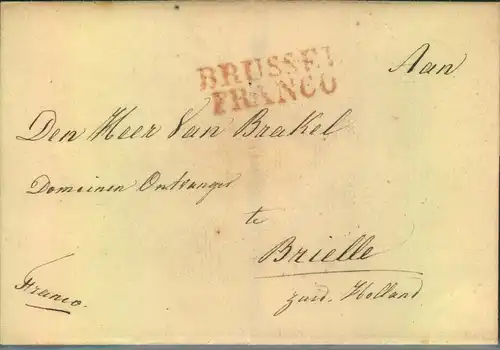 BRUSSEL
FRANCO
Aan
Den Heer Van Brakel
Domeinen Ontvanger
te
Brielle
zuid-Holland
Franco.